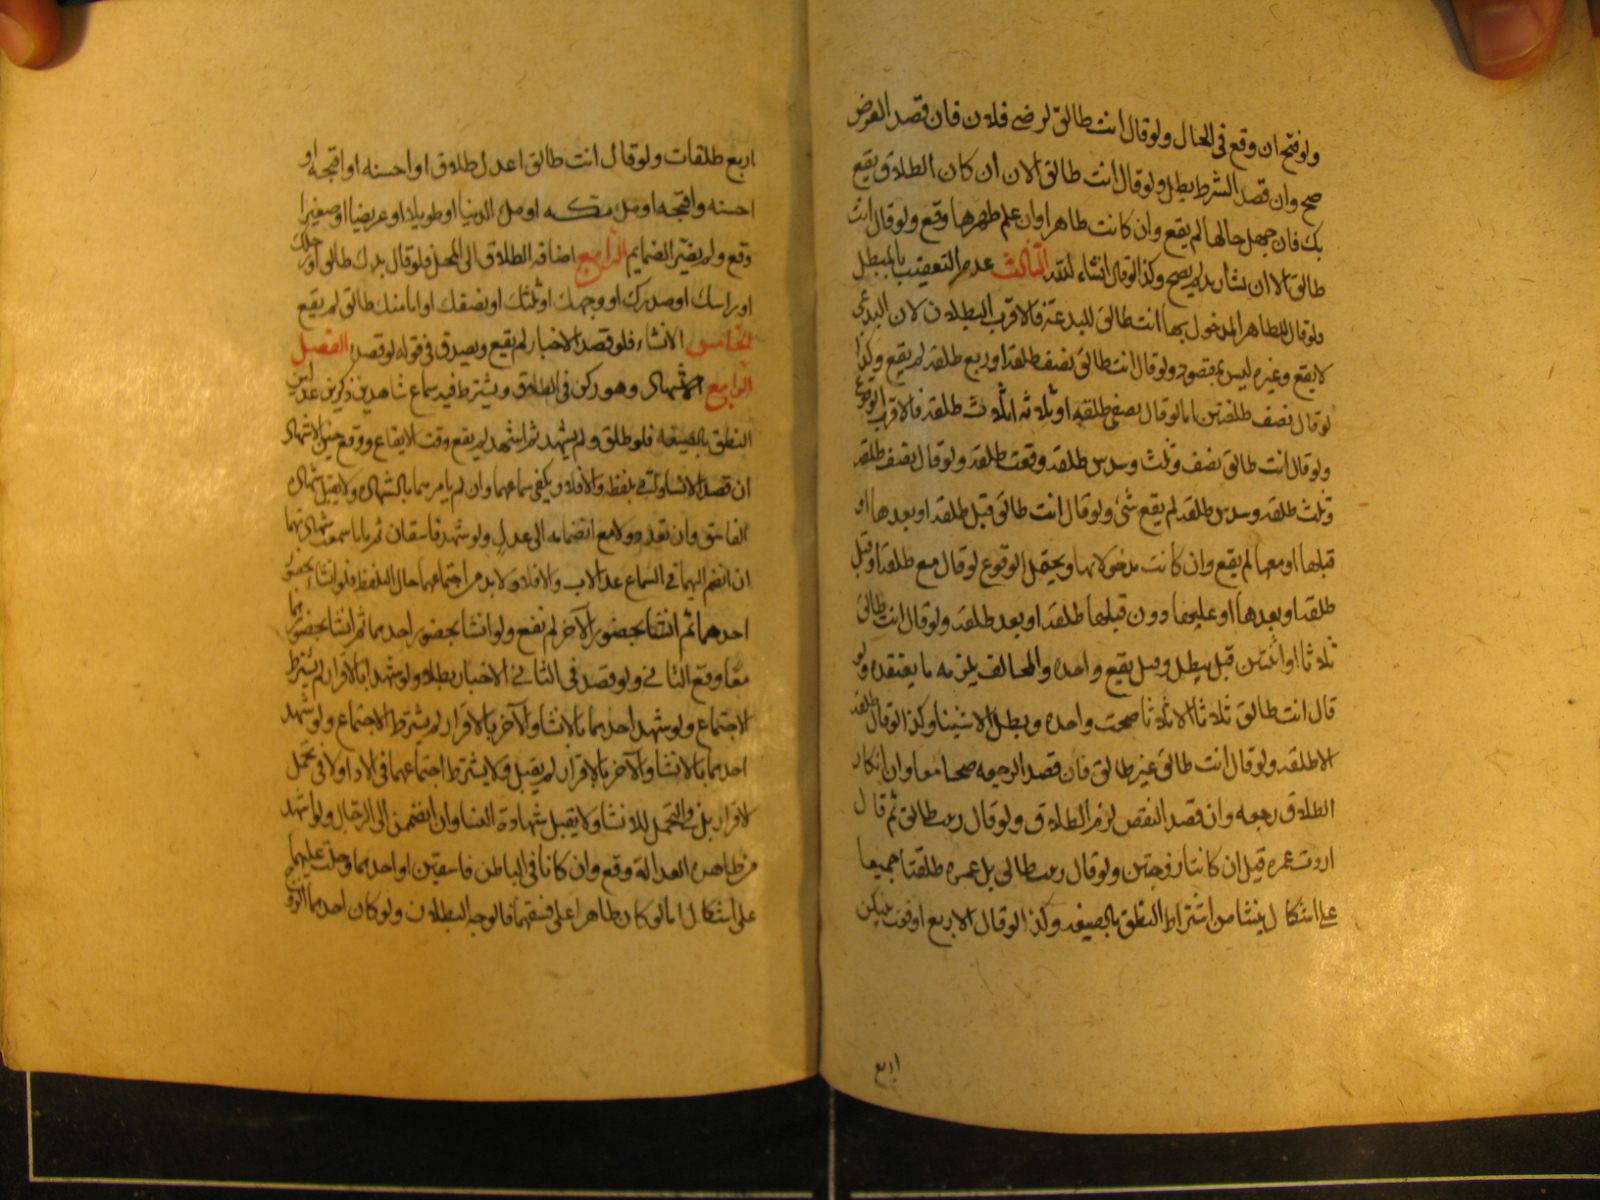 ولو فتح ان وقع في الحال ولو قال انت طالق لرضى فلان فان قصد الغرض
صح وان قصد الشرط بطل ولو قال انت طالق الان ان كان الطلاق يقع
بك فان جهل حالها لم يقع وان كانت طاهرا وان علم طهرها وقع ولو قال انت
طالق الا ان يشاء زيد لم يصح وكذا لو قال ان شاء الله الثالث عدم التعقيب بالمبطل
فلو قال للطاهر المدخول بها انت طالق للبدعة فالاقرب البطلان لان البدعي
لا يقع وغيره ليس بمقصود ولو قال انت طالق نصف طلقة او ربع طلقة لم يقع وكذا
لو قال نصف طلقتين اما لو قال نصفي طلقة او ثلاثة اثلاث طلقة فالاقرب الوقوع
ولو قال انت طالق نصف وثلث وسدس طلقة وقعت طلقة ولو قال نصف طلقة
وثلث طلقة وسدس طلقة لم يقع شئ ولو قال انت طالق قبل طلقة او بعدها او
قبلها او معها لم يقع وان كانت مدخولا بها ويحتمل الوقوع لو قال مع طلقة او قبل
طلقة او بعدها او عليها دون قبلها طلقة او بعد طلقة ولو قال انت طالق
ثلاثا او اثنتين قيل يبطل وقيل يقع واحدة والمخالف يلزمه ما يعتقده ولو
قال انت طالق ثلاثا الا ثلاثا صحت واحدة وبطل الاستثناء وكذا لو قال طلقة
الا طلقة ولو قال انت طالق غير طالق فان قصد الرجعه صحا معا وان انكار
الطلاق رجعه وان قصد النقض لزم الطلاق ولو قال زينب طالق ثم قال
اردت عمره قبل ان كانتا زوجتين ولو قال زينب طالق بل عمره طلقتا جميعا
على اشكال ينشا من اشتراط النطق بالصيغه وكذا لو قال الاربع اوقعت بينكن
اربع
اربع طلقات ولو قال انت طالق اعدل طلاق او احسنه او اقبحه او
احسنه واقبحه او مل مكه او مل الدنيا او طويلا او عريضا او صغيرا
وقع ولم يضر الضمايم الرابع اضافة الطلاق الى المحل فلو قال يدك طالق او رجلك
او راسك او صدرك او وجهك او ثلثك او نصفك او انا منك طالق لم يقع
الخامس الانشاء فلو قصد الاخبار لم يقع ويصدق في قوله لو قصده الفصل
الرابع الاشهاد وهو ركن في الطلاق ويشترط فيه سماع شاهدين ذكرين عدلين
النطق بالصيغه فلو طلق ولم يشهد ثم اشهد لم يقع وقت الايقاع ووقع حين الاشهاد
ان قصد الانشاء واتى بلفظه والا فلا ويكفي سماعهما وان لم يامرهما بالشهاده ولا يقبل شهاده
الفاسق وان تعدد ولا مع انضمامه الى عدل ولو شهد فاسقان ثم تابا سمعت شهادتهما
ان انضم اليهما في السماع عدلان والا فلا ولا بد من اجتماعهما حال التلفظ فلو انشاء بحضور
احدهما ثم انشا بحضور الآخر لم يقع ولو انشا بحضور احدهما ثم انشا بحضورهما
معا وقع الثاني ولو قصد في الثاني الاخبار بطلا ولو شهدا بالاقرار لم يشترط
الاجتماع ولو شهد احدهما بالانشا والآخر بالاقرار لم يشترط الاجتماع ولو شهد
احدهما بالانشا والآخر بالاقرار لم يقبل ولا يشترط اجتماعهما في الادا ولا في تحمل
الاقرار بل في التحمل للانشا ولا يقبل شهادة النسا وان انضممن الى الرجال ولو اشهد
من ظاهره العدالة وقع وان كانا في الباطن فاسقين او احدهما وحلت عليهما
على اشكال اما لو كان ظاهرا على فسقهما فالوجه البطلان ولو كان احدهما الزوج